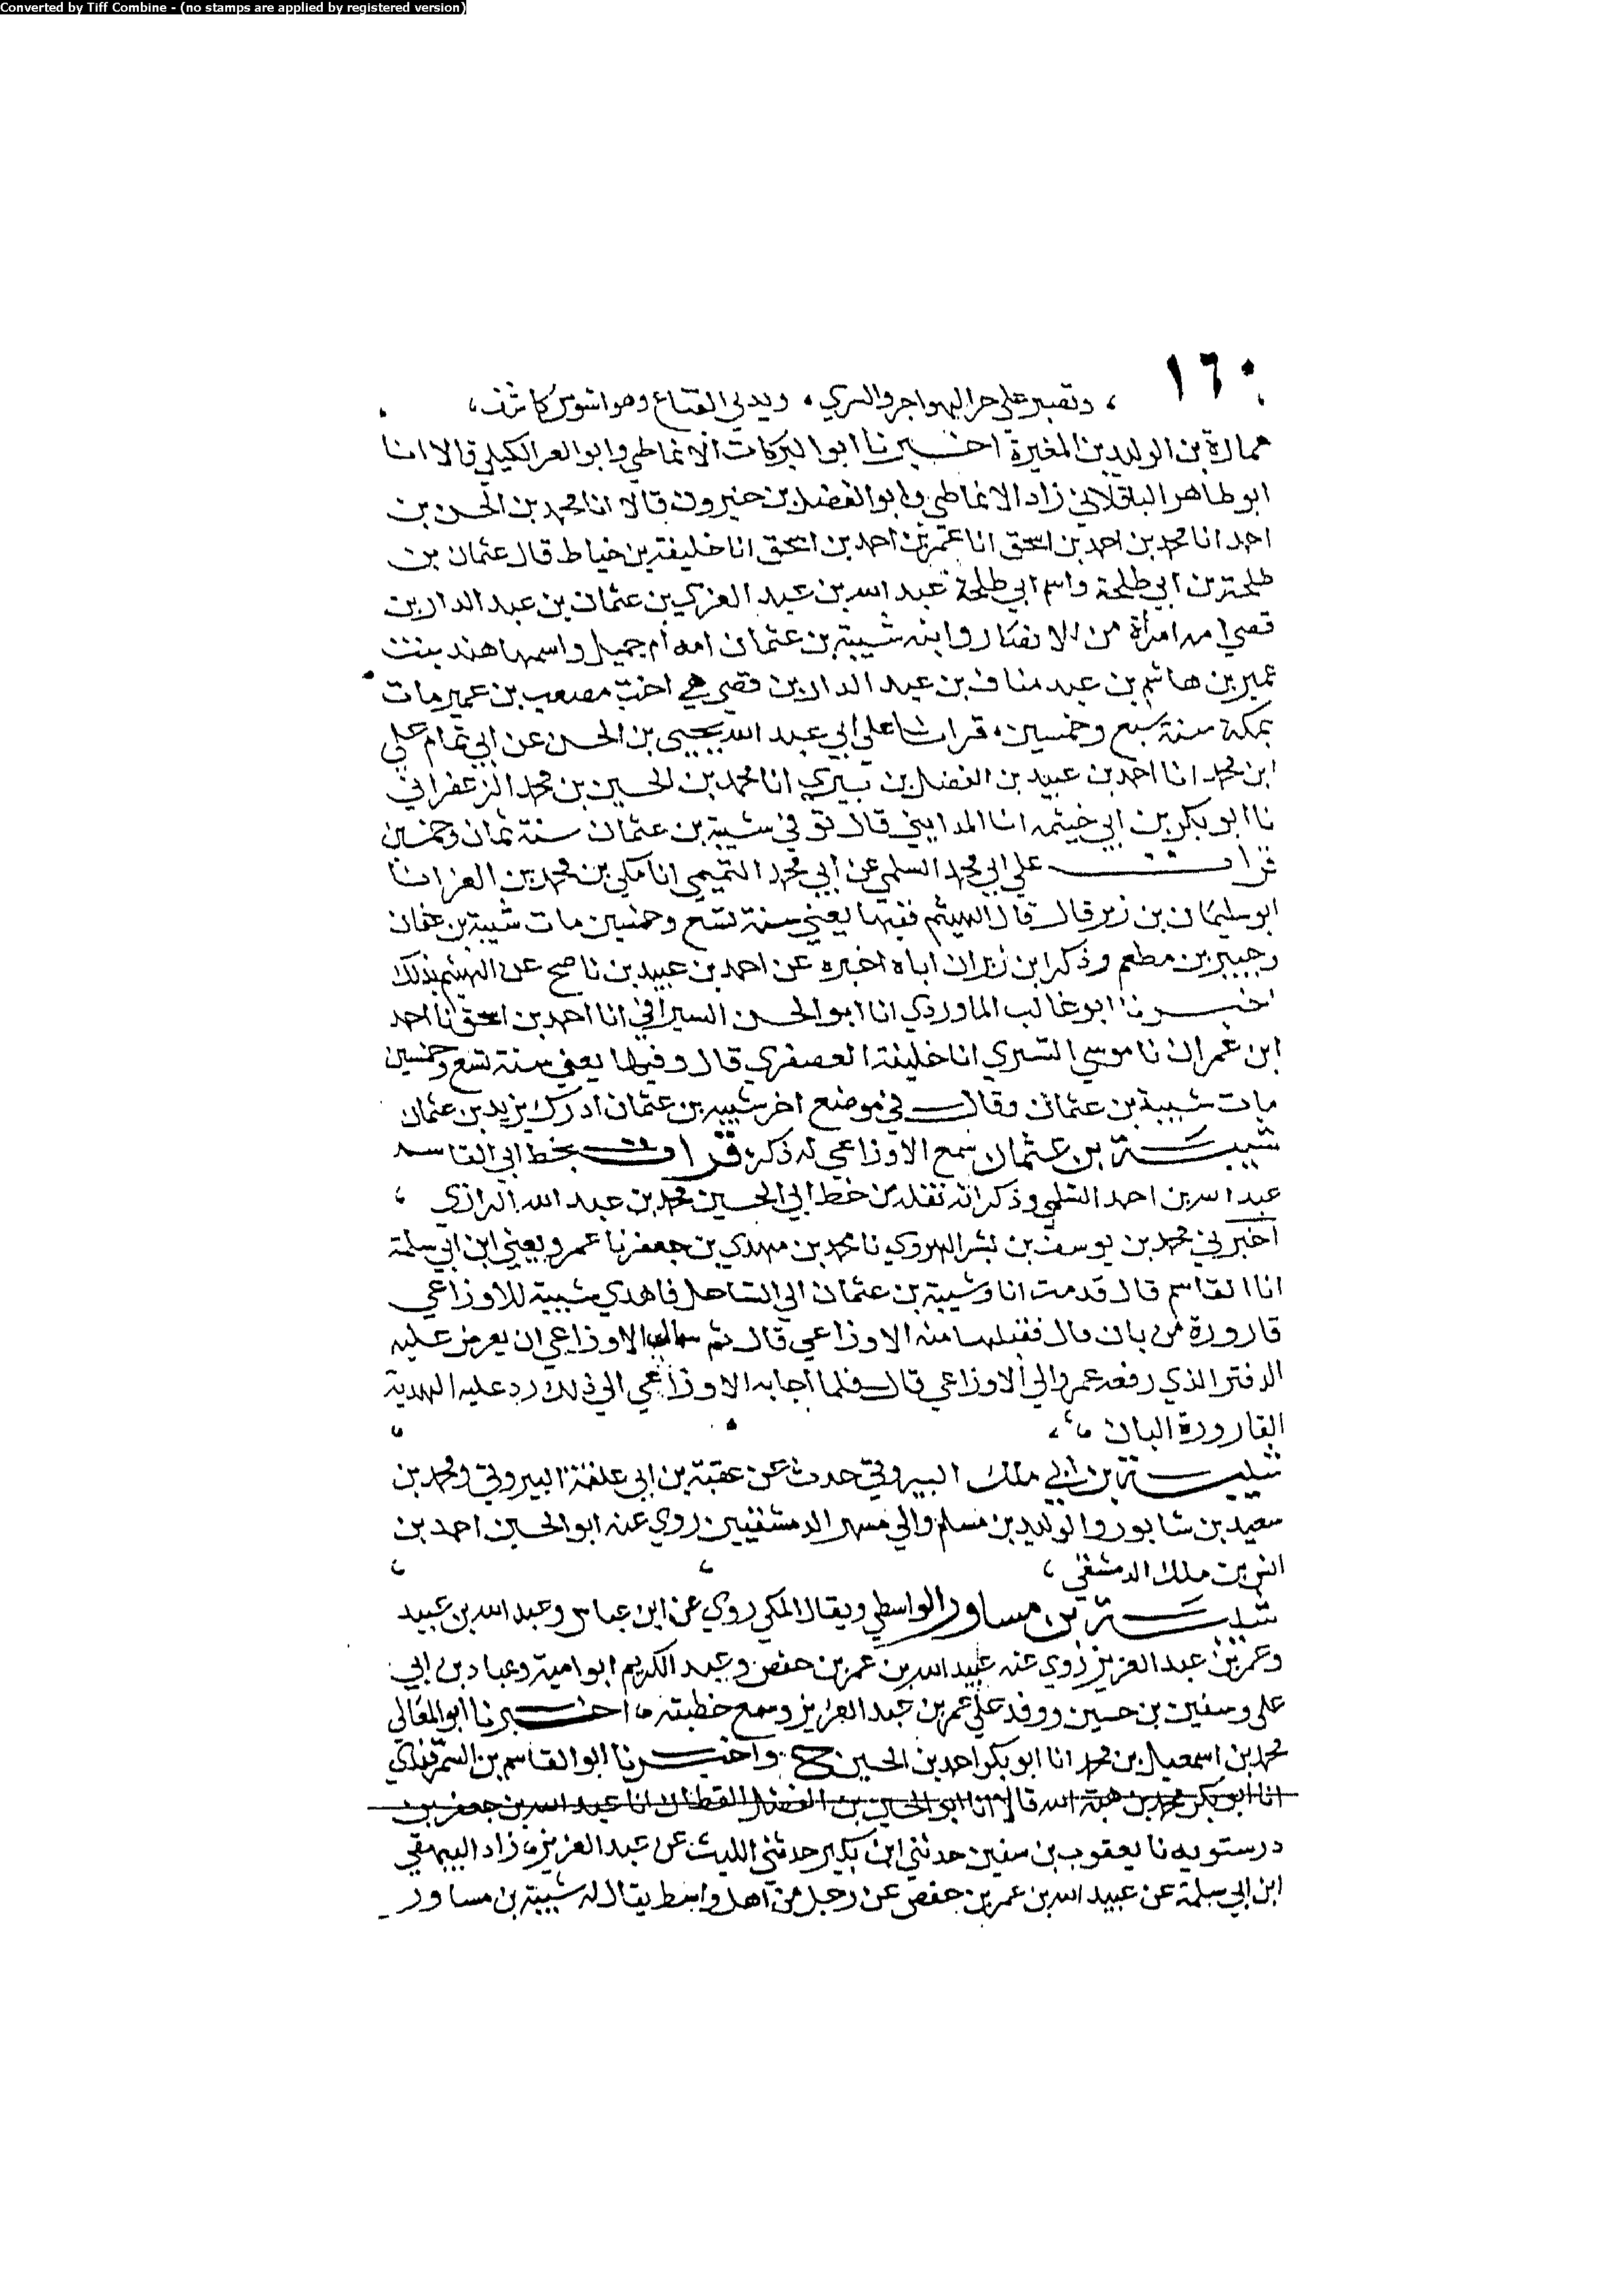 Converted by Tiff Combine - (no stamps are applied by registered version)
١٦٠
وتصبر على حر الهواجر والسري ، ويدني القناع وهو اشوس كاشف ،
عمارة بن الوليد بن المغيرة اخبرنا ابوا البركات الانماطي وابو العز الكيلي قالا انا
ابو طاهر الباقلاني زاد الانماطي وابو الفضل بن خيرون قالا انا محمد بن الحسن بن
احمد انا محمد بن احمد بن اسحق انا عمر بن احمد بن اسحق انا خليفة بن خياط قال عثمان بن
طلحة بن ابي طلحة واسم ابي طلحة عبد الله بن عبد العزي بن عثمان بن عبد الدار بن
قصي امه امرأة من الانصار وابنه شيبة بن عثمان امه أم جميل واسمها هند بنت
عمير بن هاشم بن عبد مناف بن عبد الدار بن قصي هي اخت مصعب بن عمير مات
بمكة سنة سبع وخمسين ، قرانا علي ابي عبد الله يحيى بن الحسن عن ابي تمام علي
ابن محمد انا احمد بن عبيد بن الفضل بن بيري انا محمد بن الحسين بن محمد الزعفراني
نا ابو بكر بن ابي خيثمه انا المدايني قال توفي شيبة بن عثمان سنة ثمان وخمسين
قرات علي ابي محمد السلمي عن ابي محمد التميمي انا مكي بن محمد بن الغمر انا
ابو سليمان بن زبر قال قال الهيثم ففيها يعني سنة تسع وخمسين مات شيبة بن عثمان
وجبير بن مطعم وذكر ابن زبر ان اباه اخبره عن احمد بن عبيد بن ناصح عن الهيثم بذلك
اخبرنا ابو غالب الماوردي انا ابو الحسن السيرافي انا احمد بن اسحق نا احمد
ابن عمران نا موسي التستري انا خليفة العصفري قال وفيها يعني سنة تسع وخمسين
مات شيبة بن عثمان وقال في موضع اخر شيبه بن عثمان ادرك يزيد بن عثمان
شيبة بن عثمان سمع الاوزاعي له ذكر ، قرات بخط ابي القاسم
عبد الله بن احمد السلمي وذكر انه نقله من خط ابي الحسين محمد بن عبد الله الرازي ،
اخبرني محمد بن يوسف بن بشر الهروي نا محمد بن مهدي بن جعفر نا عمرو يعني ابن ابي سلمة
انا القاسم قال قدمت انا وشيبة بن عثمان الي الساحل فاهدي شيبة للاوزاعي
قارورة من بان قال فقبلها منه الاوزاعي قال ثم سال الاوزاعي ان يعرض عليه
الدفتر الذي رفعه عمرو الي الاوزاعي قال فلما أجابه الاوزاعي الي ذلك رد عليه الهدية
القارورة البان
شيبة بن ابي ملك البيروتي حدث عن عقبة بن ابي علقمة البيروتي ومحمد بن
سعيد بن شابور والوليد بن مسلم وابي مسهر الدمشقيين روي عنه ابو الحسين احمد بن
انس بن ملك الدمشقي ،
شيبة بن مساور الواسطي ويقال المكي روي عن ابن عباس وعبد الله بن عبيد
وعمر بن عبد العزيز روي عنه عبيد الله بن عمر بن حفص وعبد الكريم ابو امية وعباد بن ابي
علي وسفين بن حسين ووفد علي عمر بن عبد العزيز وسمع خطبته ، اخبرنا ابو المعالي
محمد بن اسمعيل بن محمد انا ابو بكر احمد بن الحسين ح واخبرنا ابو القاسم بن السمرقندي
انا ابو بكر محمد بن هبة الله قالا انا ابو الحسين بن الفضل القطان انا عبد الله بن جعفر بن
درستويه نا يعقوب بن سفين حدثني ابن بكير حدثني الليث عن عبد العزيز ، زاد البيهقي
ابن ابي سلمة عن عبيد الله بن عمر بن حفص عن رجل من اهل واسط يقال له شيبة بن مساور